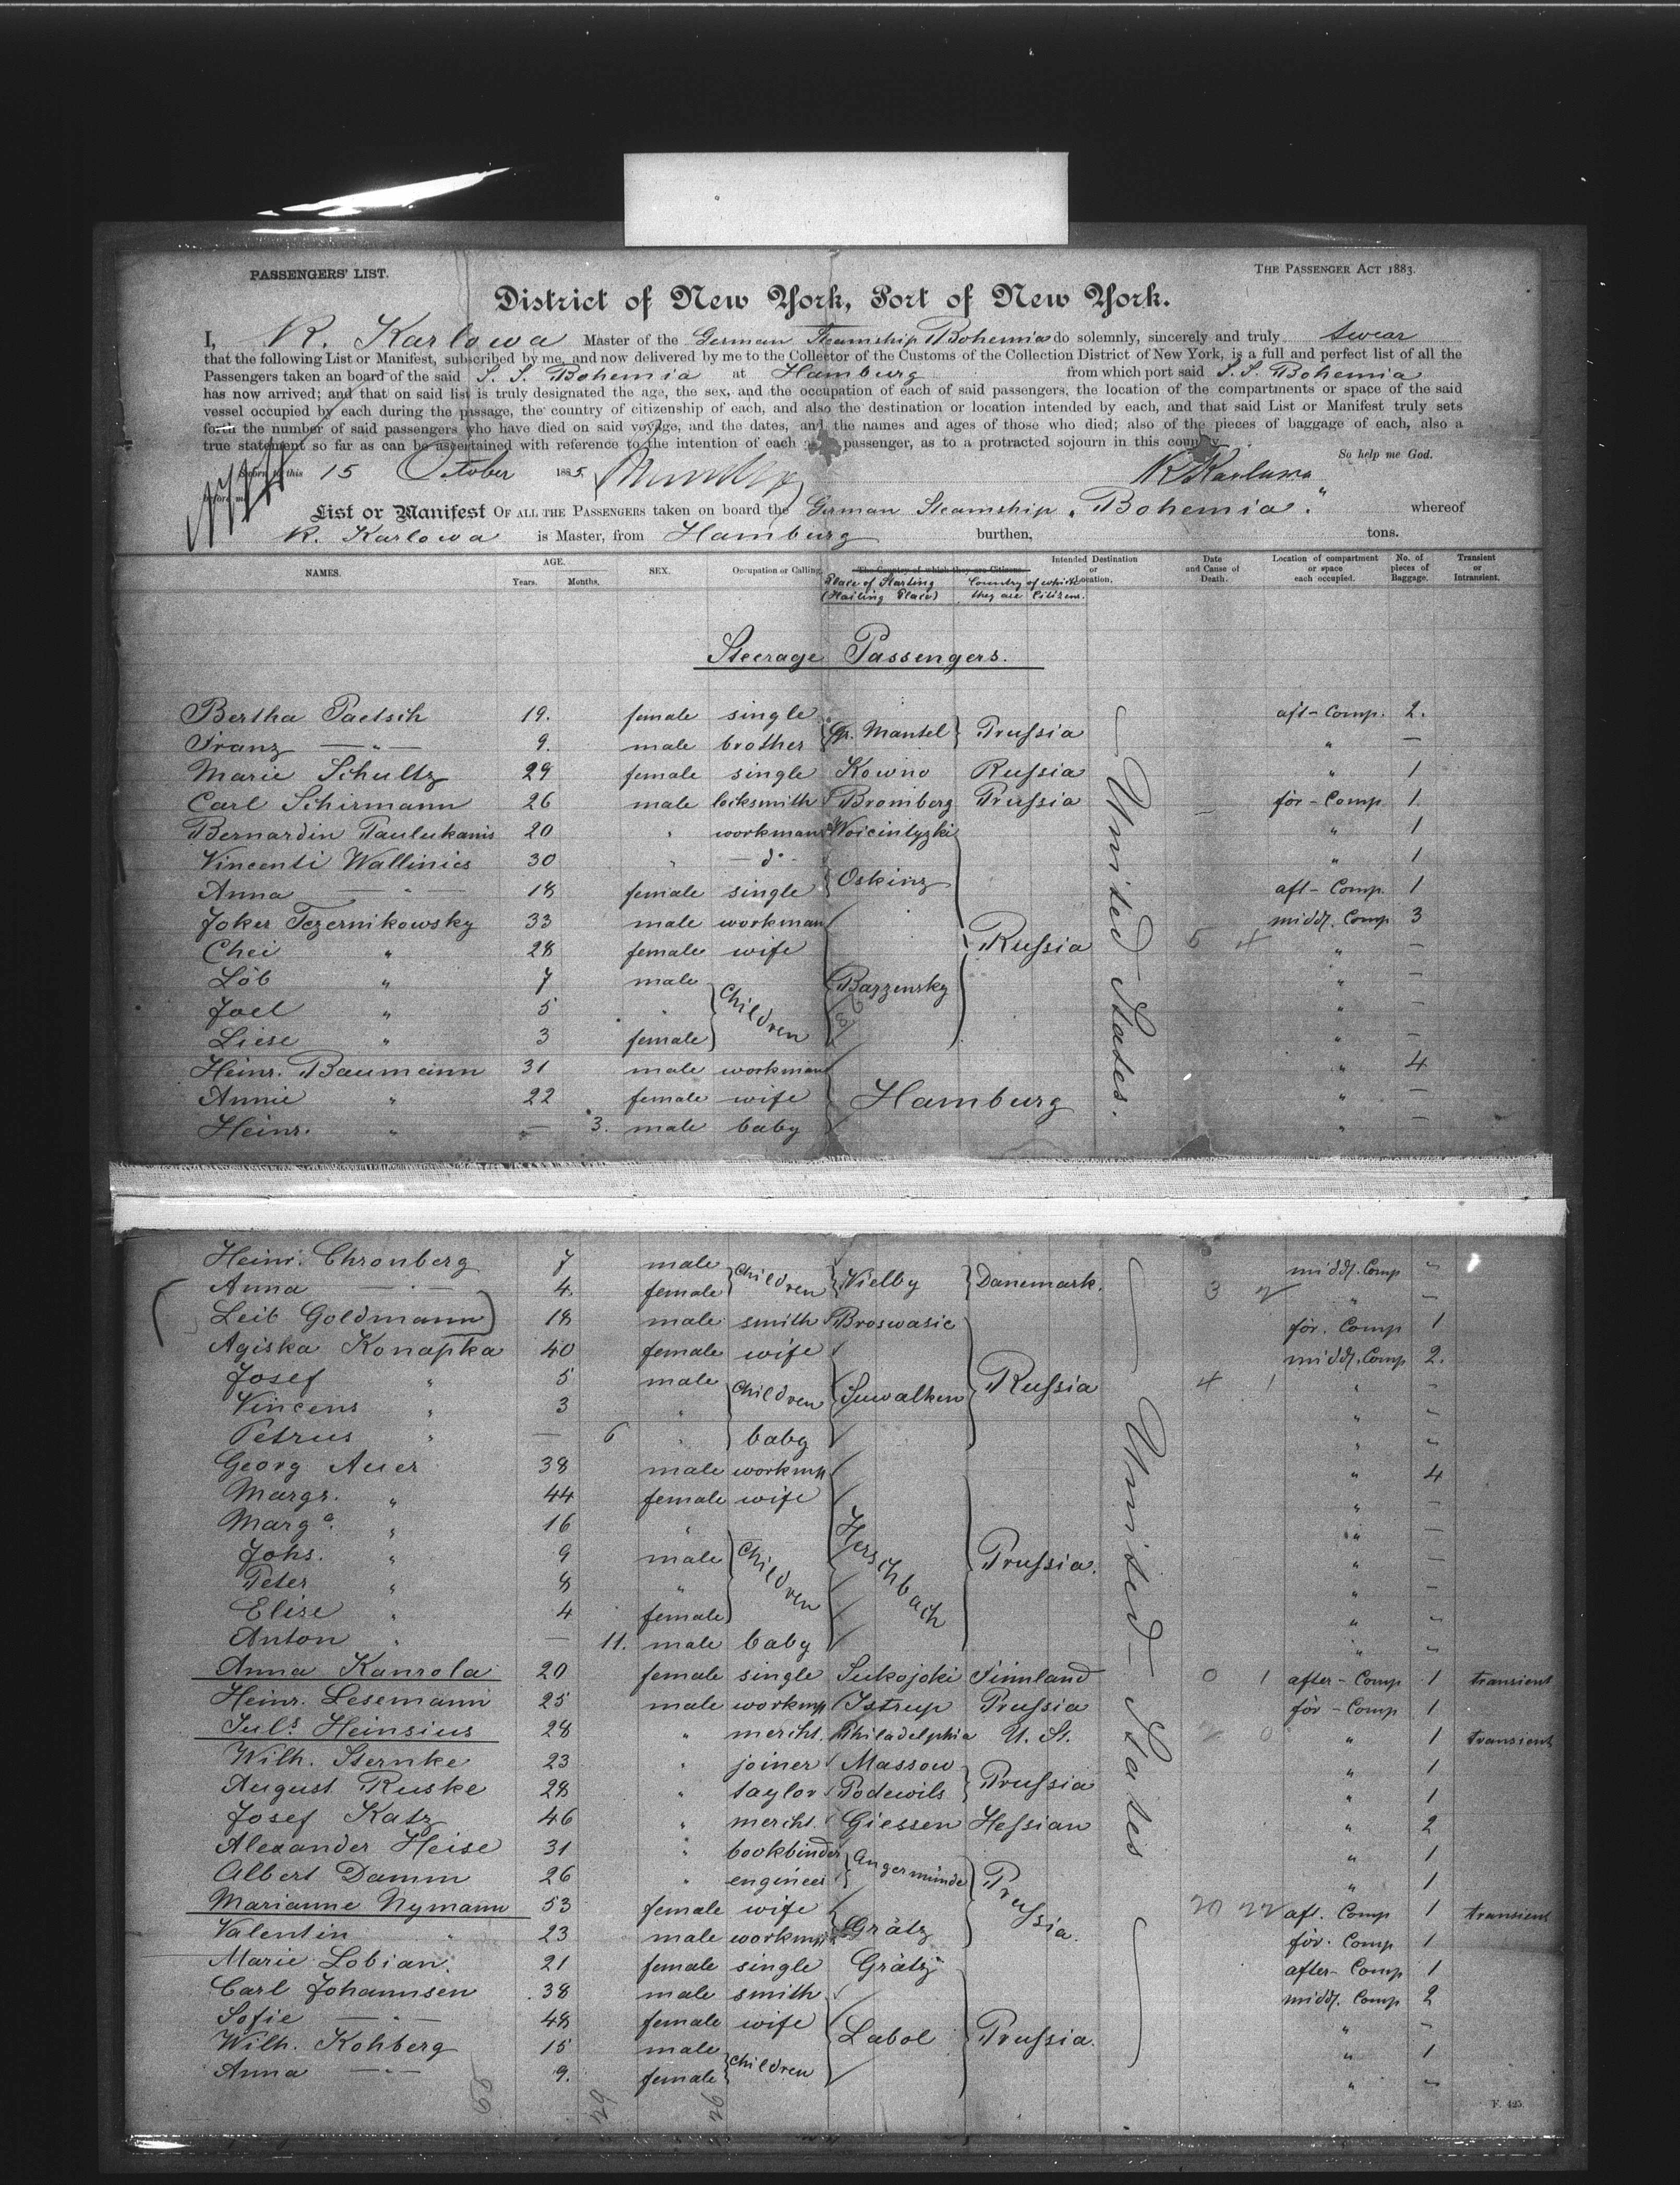 PASSENGERS' LIST.
THE PASSENGER ACT 1883.
District of New York, Port of New York.
I, R. Karlowa Master of the German Steamship Bohemia do solemnly, sincerely and truly swear
that the following List or Manifest, subscribed by me, and now delivered by me to the Collector of the Customs of the Collection District of New York, is a full and perfect list of all the
Passengers taken an board of the said S. S. Bohemia at Hamburg from which port said S. S. Bohemia
has now arrived; and that on said list is truly designated the age, the sex, and the occupation of each of said passengers, the location of the compartments or space of the said
vessel occupied by each during the passage, the country of citizenship of each, and also the destination or location intended by each, and that said List or Manifest truly sets
forth the number of said passengers who have died on said voyage, and the dates, and the names and ages of those who died; also of the pieces of baggage of each, also a
true statement so far as can be ascertained with reference to the intention of each passenger, as to a protracted sojourn in this country
So help me God.
Sworn to this 15 October 1885.
before me
R Karlowa
List or Manifest OF ALL THE PASSENGERS taken on board the German Steamship "Bohemia" whereof
R. Karlowa is Master, from Hamburg burthen, tons.
NAMES. AGE. Years. Months. SEX. Occupation or Calling. The Country of which they are Citizens. Place of Starting (Hailing Place) Country of which they are Citizens. Intended Destination or Location. Date and Cause of Death. Location of compartment or space each occupied. No. of pieces of Baggage. Transient or Intransient.
Steerage Passengers.
Bertha Paetsch 19. female single Gr. Mantel Prussia aft-Comp. 2.
Franz — " — 9. male brother " —
Marie Schultz 29 female single Kowno Russia " 1
Carl Schirmann 26 male locksmith Bromberg Prussia för-Comp. 1.
Bernardin Paulukanis 20 " workman Woicintyzki " 1
Vincenti Wallinies 30 " — do - " 1
Anna — " — 18 female single Oskinz aft-Comp. 1
Joker Tezernikowsky 33 male workman middl. Comp 3
Chei " 28 female wife Russia 5 4 " —
Löb " 7 male Bazzensky " —
Joel " 5 " Children " —
Liese " 3 female " —
Heinr. Baumann 31 male workman " 4
Annie " 22 female wife Hamburg " —
Heinr. " — 3. male baby " —
United States.
Heinr. Chronberg 7 male middl. Comp "
Anna — " — 4. female Children Vielby Danemark. 3 2 " —
Leib Goldmann 18 male smith Broswasic för. Comp 1
Agiska Konapka 40 female wife middl. Comp 2.
Josef " 5 male Children Suwalken Russia 4 1 " "
Vincens " 3 " " "
Petrus " — 6 " baby " "
Georg Auer 38 male workmn " 4
Margr. " 44 female wife " —
Marga. " 16 " " —
Johs. " 9 male Children Herschbach Prussia. " —
Peter " 8 " " —
Elise " 4 female " "
Anton " — 11. male baby " "
Anna Kanrola 20 female single Sukojoki Finnland 0 1 after-Comp 1 transient
Heinr. Lesemann 25 male workmn Istrup Prussia för-Comp 1
Juls Heinsius 28 " mercht. Philadelphia U. St. 2 0 " 1 transient
Wilh. Sternke 23 " joiner Massow " 1
August Ruske 28 " taylor Podewils Prussia " 1
Josef Katz 46 " mercht. Giessen Hessian " 2
Alexander Heise 31 " bookbinder Angermünde " 1
Albert Damm 26 " engineer Prussia. " 1
Marianne Nymann 53 female wife 20 22 aft. Comp 1 transient
Valentin " 23 male workmn Grätz för. Comp 1
Marie Lobian. 21 female single Grätz after-Comp 1
Carl Johannsen 38 male smith middl. Comp 2
Sofie — " — 48 female wife Labol Prussia. " "
Wilh. Kohberg 15 male " 1
Anna — " — 9. female Children " "
United States
F. 425.